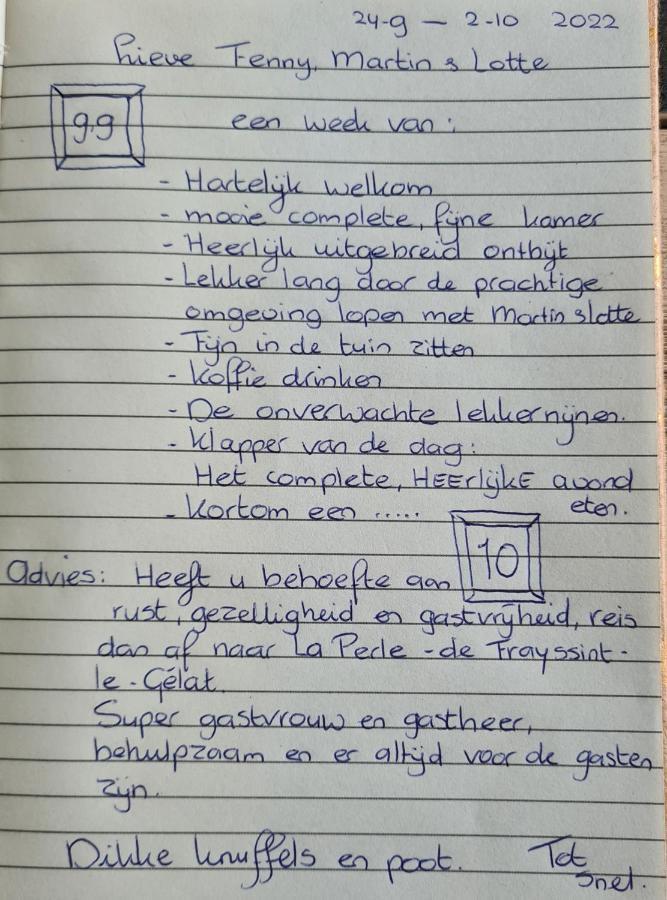 24-9 - 2-10 2022
Lieve Fenny, Martin & Lotte
9,9 een week van:
- Hartelijk welkom
- mooie complete, fijne kamer
- Heerlijk uitgebreid ontbijt
- Lekker lang door de prachtige
omgeving lopen met Martin & Lotte
- Fijn in de tuin zitten
- Koffie drinken
- De onverwachte lekkernijnen.
- Klapper van de dag:
Het complete, HEErlijkE avond
eten.
- Kortom een ..... 10
Advies: Heeft u behoefte aan
rust, gezelligheid en gastvrijheid, reis
dan af naar La Perle - de Frayssint -
le - Gélat.
Super gastvrouw en gastheer,
behulpzaam en er altijd voor de gasten
zijn.
Dikke knuffels en poot. Tot
snel.